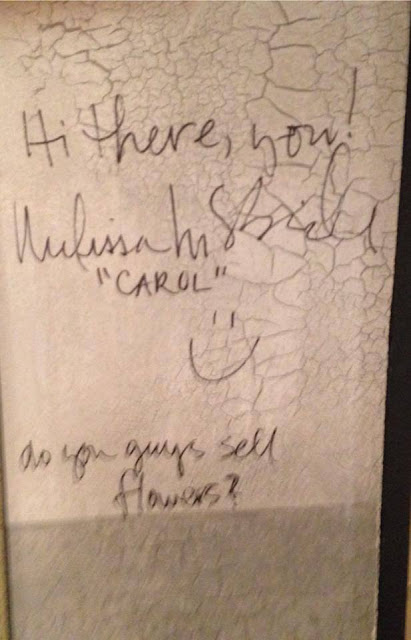 Hi there, you!
Melissa McBride
"CAROL"
do you guys sell
flowers?